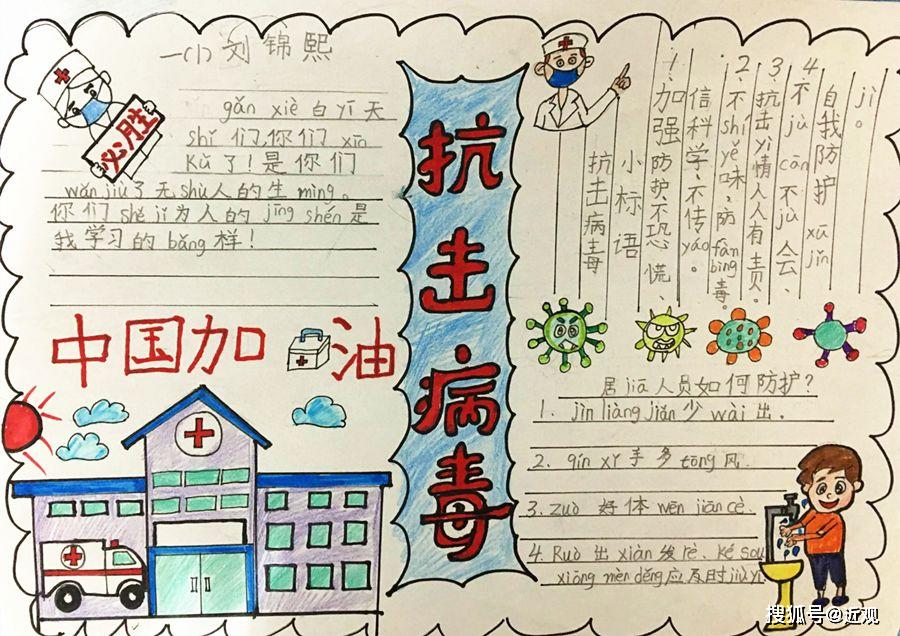 一(1) 刘锦熙
必胜
gǎn xiè 白 yī 天
shǐ 们,你们 xīn
Kǔ 了!是你们
wǎn jiù 了无 shù 人的生 mìng。
你们 shě jǐ 为人的 jīng shén 是
我学习的 bǎng 样!
中国加油
抗击病毒
抗击病毒
小标语
1.加强防护不恐慌、
信科学,不传 yáo。
2.不 shí yě 味,防 fán bìng 毒。
3.抗击 yì 情人人有责。
4不 jù cān 不 jù 会、
自我防护 xū jǐn
jì。
居 jiā 人员如何防护?
1. jìn liàng jiǎn 少 wài 出.
2. qín xǐ 手多 tōng 风.
3. zuò 好体 wēn jiān cè.
4. Ruò 出 xiàn 发 rè、ké sou
xiōng mèn děng 应及时 jiù yī.
搜狐号@近观